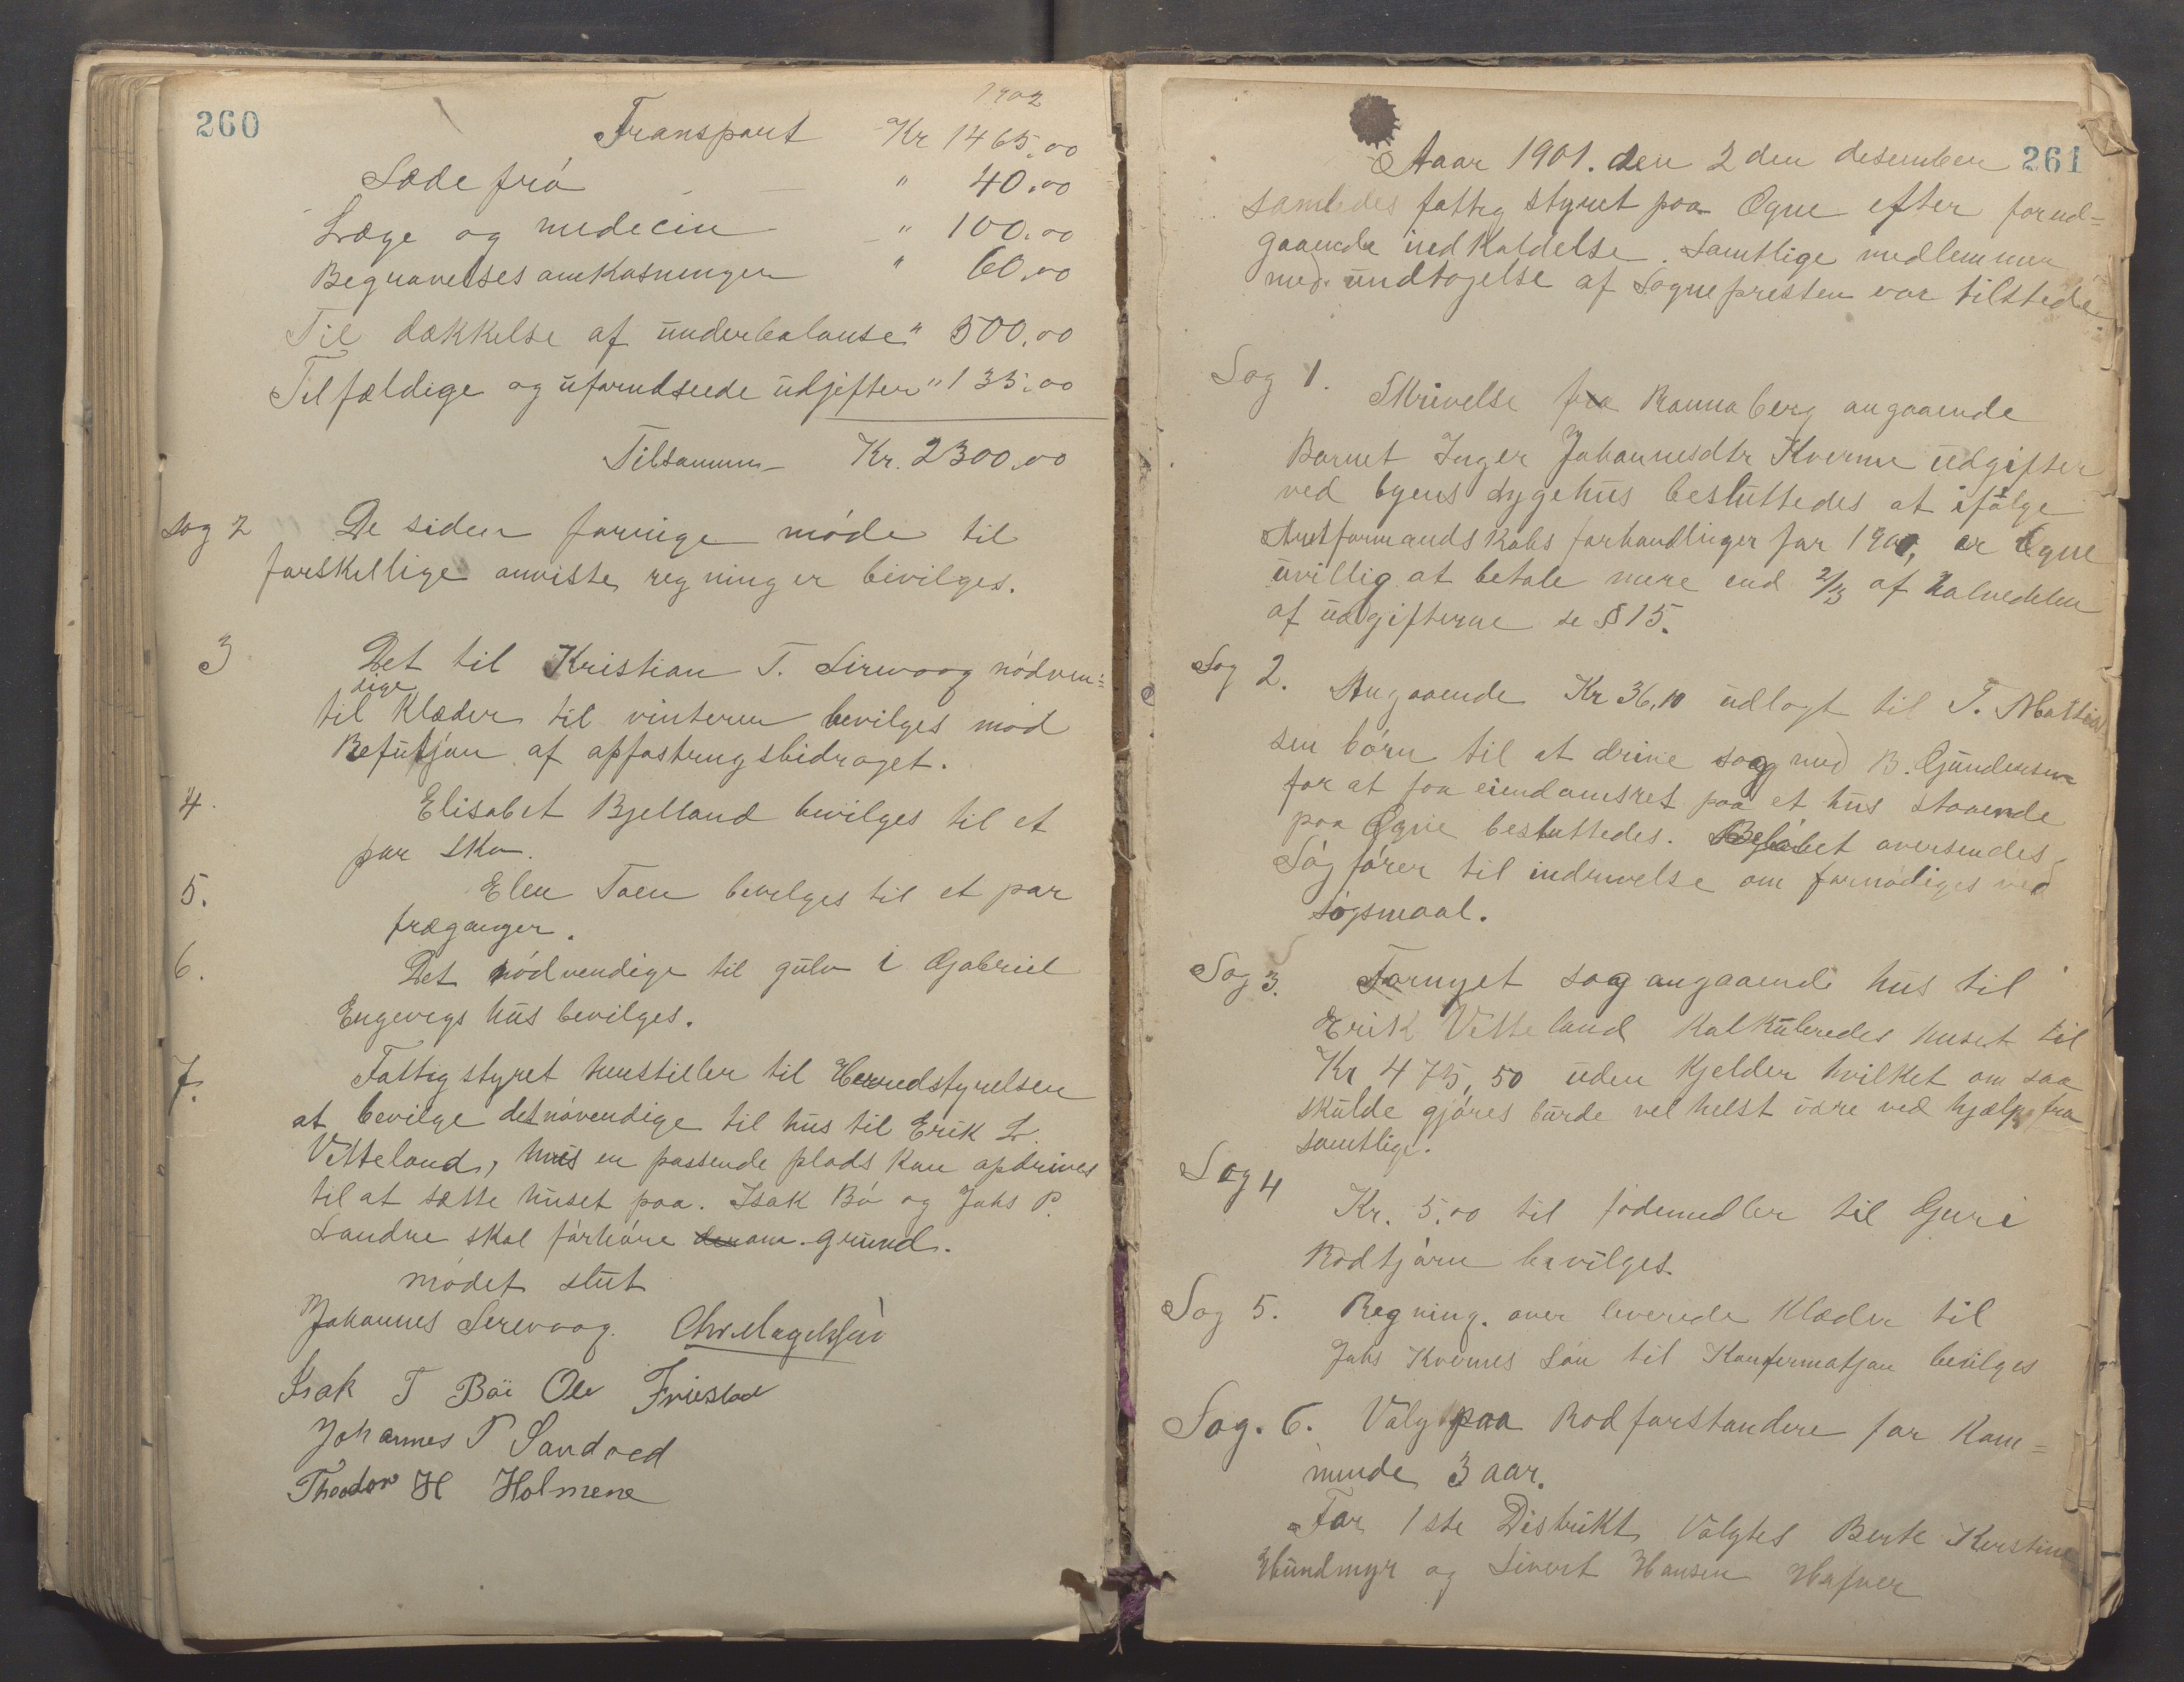 260
1902
Transport Kr 1465.00
Sædefrö " 40.00
Læge og medecin " 100.00
Begravelses omkosninger " 60.00
Til dækkelse af underbalanse " 500.00
Tilfældige og uforudseede udjifter " 135.00
Tilsammen Kr. 2300.00
Sag 2 De siden forrige möde til
forskellige anviste regninger bevilges.
3 Det til Kristian T. Sirevaag nödven=
dige
til Klæder til vinteren bevilges mod
Refusjon af opfostringsbidraget.
4. Elisabet Bjelland bevilges til et
par Sko.
5. Elen Toen bevilges til et par
træganger.
6. Det nödvendige til gulv i Gabriel
Engevegs hus bevilges.
7. Fattigstyret henstiller til Herredstyrelsen
at bevilge det növendige til hus til Erik L.
Vetteland, hvis en passende plads kan opdrives
til at sætte huset paa. Isak Bö og Johs P.
Sandve skal förhöre om grund.
mödet slut
Johannes Sirevaag. Chr. Magelssön
Isak T Böe Ole Friestad
Johannes P Sandved
Theodor H Holmene
261
Aaar 1901. den 2 den desember
samledes fattigstyret paa Ogne efter forud=
gaaende indkaldelse. Samtlige medlemmer
med undtagelse af Sognepresten var tilstede.
Sag 1. Skrivelse fra Rannaberg angaaende
Barnet Inger Johannesdtr Kverme udgifter
ved byens sygehus besluttedes at ifölge
Amtformandskabs forhandlinger for 1900, er Ogne
uvillig at betale mere end 2/3 af halvedelen
af udgifterne se § 15.
Sag 2. Angaaende Kr 36,10 udlagt til T. Mattias
sen börn til at drive sag med B. Gundersen
for at faa eiendomsret paa et hus staaende
paa Ogne besluttedes. Belöbet oversendes
Sagförer til inddrivelse om fornödiges ved
sögsmaal.
Sag 3. Fornyet sag angaaende hus til
Erik Vetteland Kalkuleredes huset til
Kr 475,50 uden Kjelder hvilket om saa
skulde gjöres burde vel helst være ved hjælp fra
samtlige.
Sag 4 Kr. 5.00 til födemedler til Guri
Rodtjörn bevilges.
Sag 5. Regning. over leverede Klæder til
Johs Kvermes Sön til Konfermatjon bevilges
Sag. 6. Valg paa Rodforstandere for Kom=
mende 3 aar.
For 1ste Distrikt valgtes Berte Kirstine
Hundmyr og Sivert Hansen Hafner